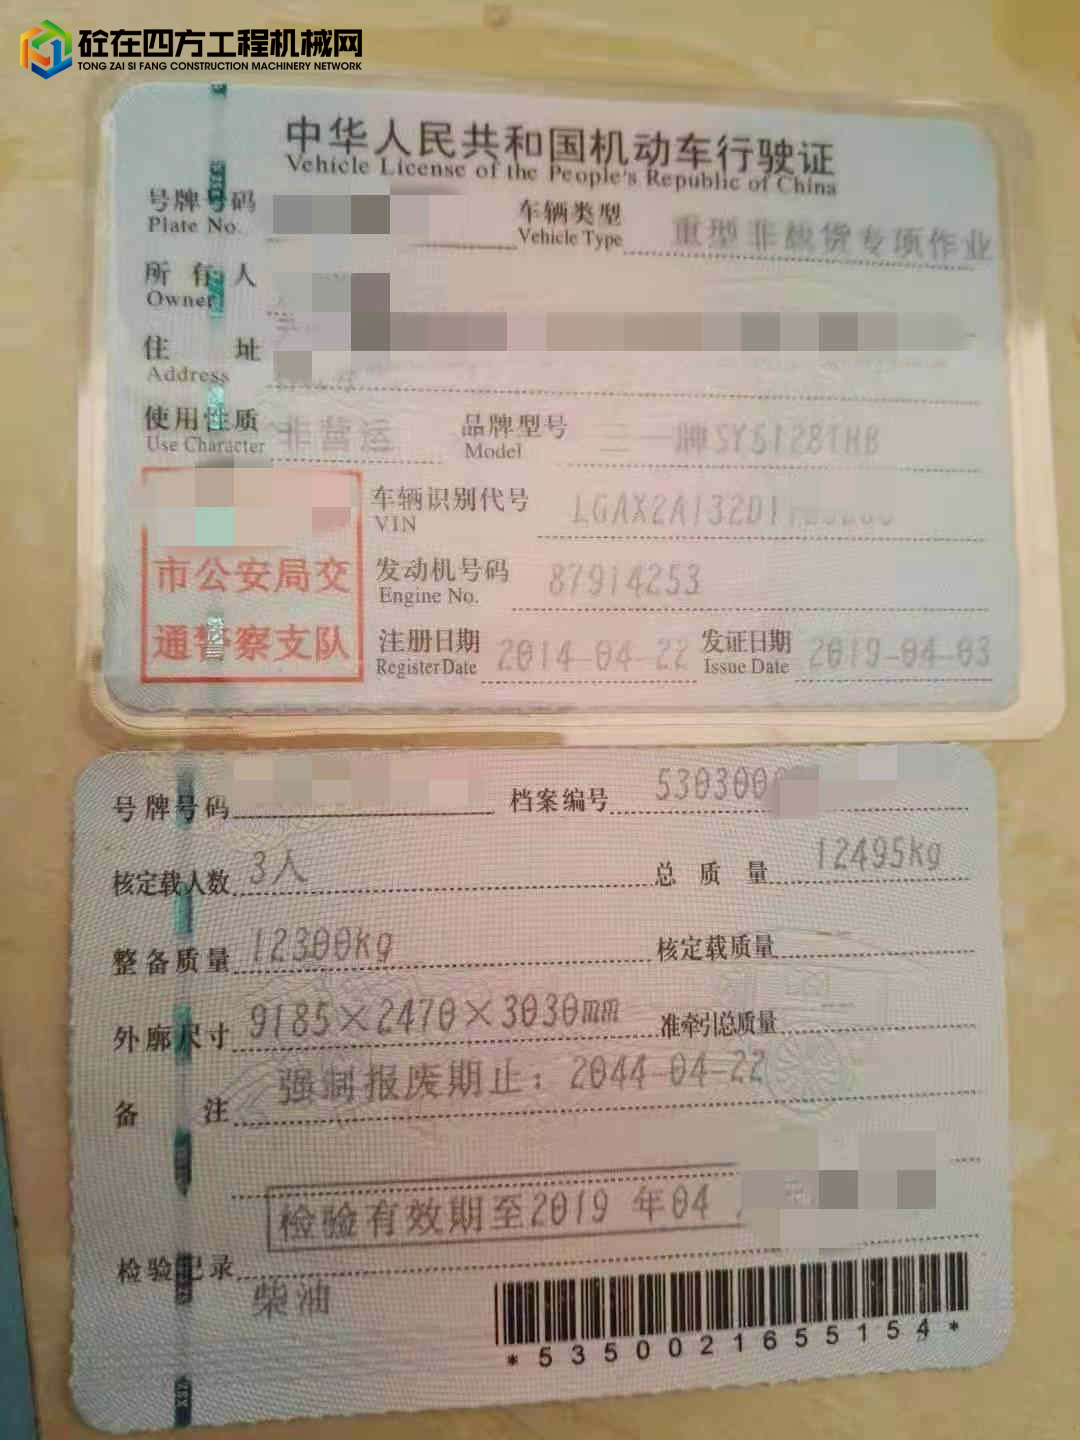 砼在四方工程机械网
TONG ZAI SI FANG CONSTRUCTION MACHINERY NETWORK
中华人民共和国机动车行驶证
Vehicle License of the People's Republic of China
号牌号码
Plate No.
车辆类型 重型非载货专项作业
Vehicle Type
所有人
Owner
住 址
Address
使用性质 非营运 品牌型号 三一牌SY5128THB
Use Character Model
车辆识别代号 LGAX2A132D1
VIN
市公安局交
通警察支队
发动机号码 87914253
Engine No.
注册日期 2014-04-22 发证日期 2019-04-03
Register Date Issue Date
号牌号码 档案编号 530300
核定载人数 3人 总质量 12495kg
整备质量 12300kg 核定载质量
外廓尺寸 9185×2470×3030mm 准牵引总质量
备 注 强制报废期止：2044-04-22
检验有效期至2019 年04
检验记录
柴油
*5350021655154*